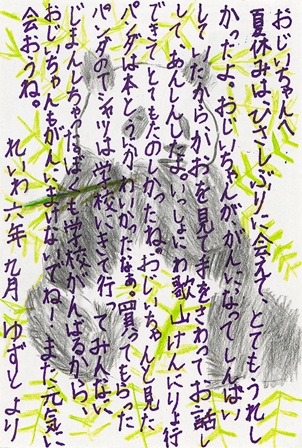 おじいちゃんへ
夏休みは、ひさしぶりに会えて、とてもうれし
かったよ。おじいちゃんが、がんになってしんぱい
していたからかおを見て手をさわってお話し
してあんしんしたよ。いっしょにわ歌山けんにりょ行
できてとてもたのしかったね。おじいちゃんと見た
パンダは本とうにかわいかったなあ。買ってもらった
パンダのTシャツは学校にきて行ってみんなに
じまんしちゃった。ぼくも学校がんばるから、
おじいちゃんもがんにまけないでね！また元気に
会おうね。 れいわ六年 九月 ゆずとより